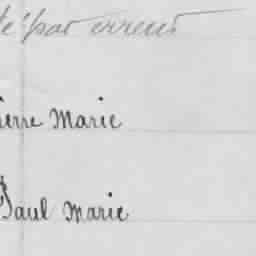 té par erreur
ierre Marie
Paul Marie